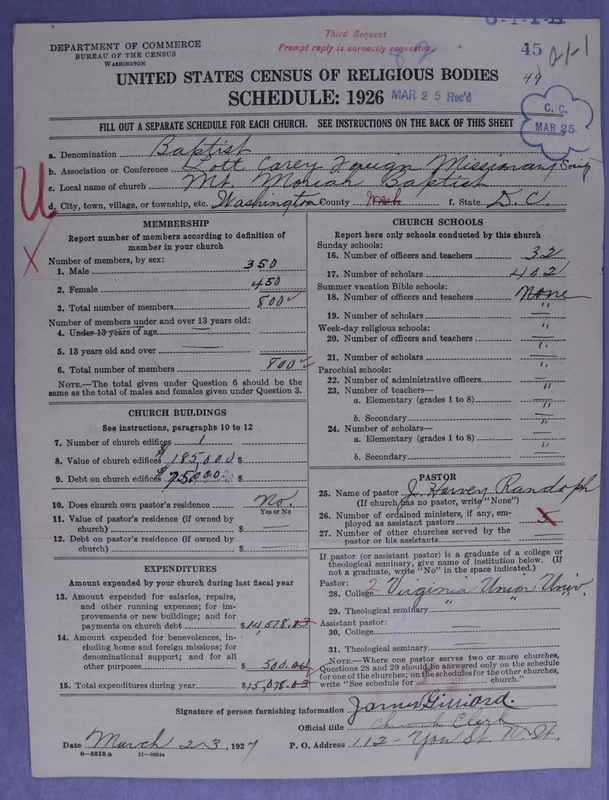 Third Request
Prompt reply is earnestly requested.
DEPARTMENT OF COMMERCE
BUREAU OF THE CENSUS
WASHINGTON
45
49
UNITED STATES CENSUS OF RELIGIOUS BODIES
SCHEDULE: 1926
MAR 25 Rec'd
C. C.
MAR 25
FILL OUT A SEPARATE SCHEDULE FOR EACH CHURCH. SEE INSTRUCTIONS ON THE BACK OF THIS SHEET
a. Denomination Baptist
b. Association or Conference Lott Carey Foreign Missionary Society
c. Local name of church Mt. Moriah Baptist
d. City, town, village, or township, etc. Washington County Wash f. State D.C.
MEMBERSHIP
Report number of members according to definition of
member in your church
Number of members, by sex:
1. Male 350
2. Female 450
3. Total number of members 800
Number of members under and over 13 years old:
4. Under 13 years of age
5. 13 years old and over
6. Total number of members 800
NOTE.—The total given under Question 6 should be the
same as the total of males and females given under Question 3.
CHURCH BUILDINGS
See instructions, paragraphs 10 to 12
7. Number of church edifices 1
8. Value of church edifices $185,000 $
9. Debt on church edifices $
10. Does church own pastor's residence No.
Yes or No
11. Value of pastor's residence (if owned by
church) $
12. Debt on pastor's residence (if owned by
church) $
EXPENDITURES
Amount expended by your church during last fiscal year
13. Amount expended for salaries, repairs,
and other running expenses; for im-
provements or new buildings; and for
payments on church debt $14,578.03
14. Amount expended for benevolences, in-
cluding home and foreign missions; for
denominational support; and for all
other purposes $500.00
15. Total expenditures during year $15,078.03
CHURCH SCHOOLS
Report here only schools conducted by this church
Sunday schools:
16. Number of officers and teachers 32
17. Number of scholars 402
Summer vacation Bible schools:
18. Number of officers and teachers None
19. Number of scholars "
Week-day religious schools:
20. Number of officers and teachers "
21. Number of scholars "
Parochial schools:
22. Number of administrative officers "
23. Number of teachers—
a. Elementary (grades 1 to 8) "
b. Secondary "
24. Number of scholars—
a. Elementary (grades 1 to 8) "
b. Secondary "
PASTOR
25. Name of pastor J. Harvey Randolph
(If church has no pastor, write "None")
26. Number of ordained ministers, if any, em-
ployed as assistant pastors 5
27. Number of other churches served by the
pastor or his assistants
If pastor (or assistant pastor) is a graduate of a college or
theological seminary, give name of institution below. (If
not a graduate, write "No" in the space indicated.)
Pastor:
28. College 2 Virginia Union Univ
29. Theological seminary " "
Assistant pastor:
30. College
31. Theological seminary
NOTE.—Where one pastor serves two or more churches,
Questions 28 and 29 should be answered only on the schedule
for one of the churches; on the schedules for the other churches,
write "See schedule for church."
Signature of person furnishing information James Gilliard.
Official title Church Clerk
Date March 23, 1927 P. O. Address 112 - You St. N. W.
8—5518a 11—9054a